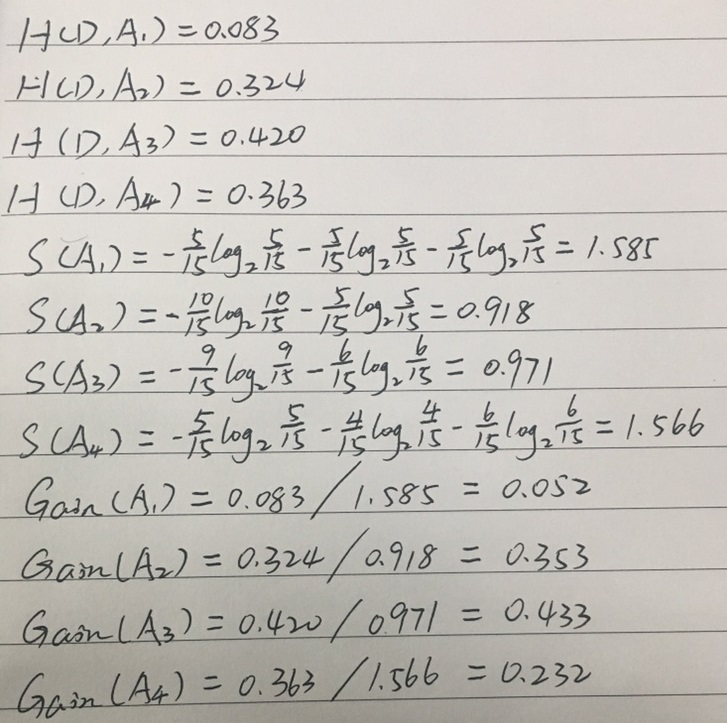 H(D,A₁) = 0.083
H(D,A₂) = 0.324
H(D,A₃) = 0.420
H(D,A₄) = 0.363
S(A₁) = -5/15 log₂ 5/15 - 5/15 log₂ 5/15 - 5/15 log₂ 5/15 = 1.585
S(A₂) = -10/15 log₂ 10/15 - 5/15 log₂ 5/15 = 0.918
S(A₃) = -9/15 log₂ 9/15 - 6/15 log₂ 6/15 = 0.971
S(A₄) = -5/15 log₂ 5/15 - 4/15 log₂ 4/15 - 6/15 log₂ 6/15 = 1.566
Gain(A₁) = 0.083 / 1.585 = 0.052
Gain(A₂) = 0.324 / 0.918 = 0.353
Gain(A₃) = 0.420 / 0971 = 0.433
Gain(A₄) = 0.363 / 1.566 = 0.232